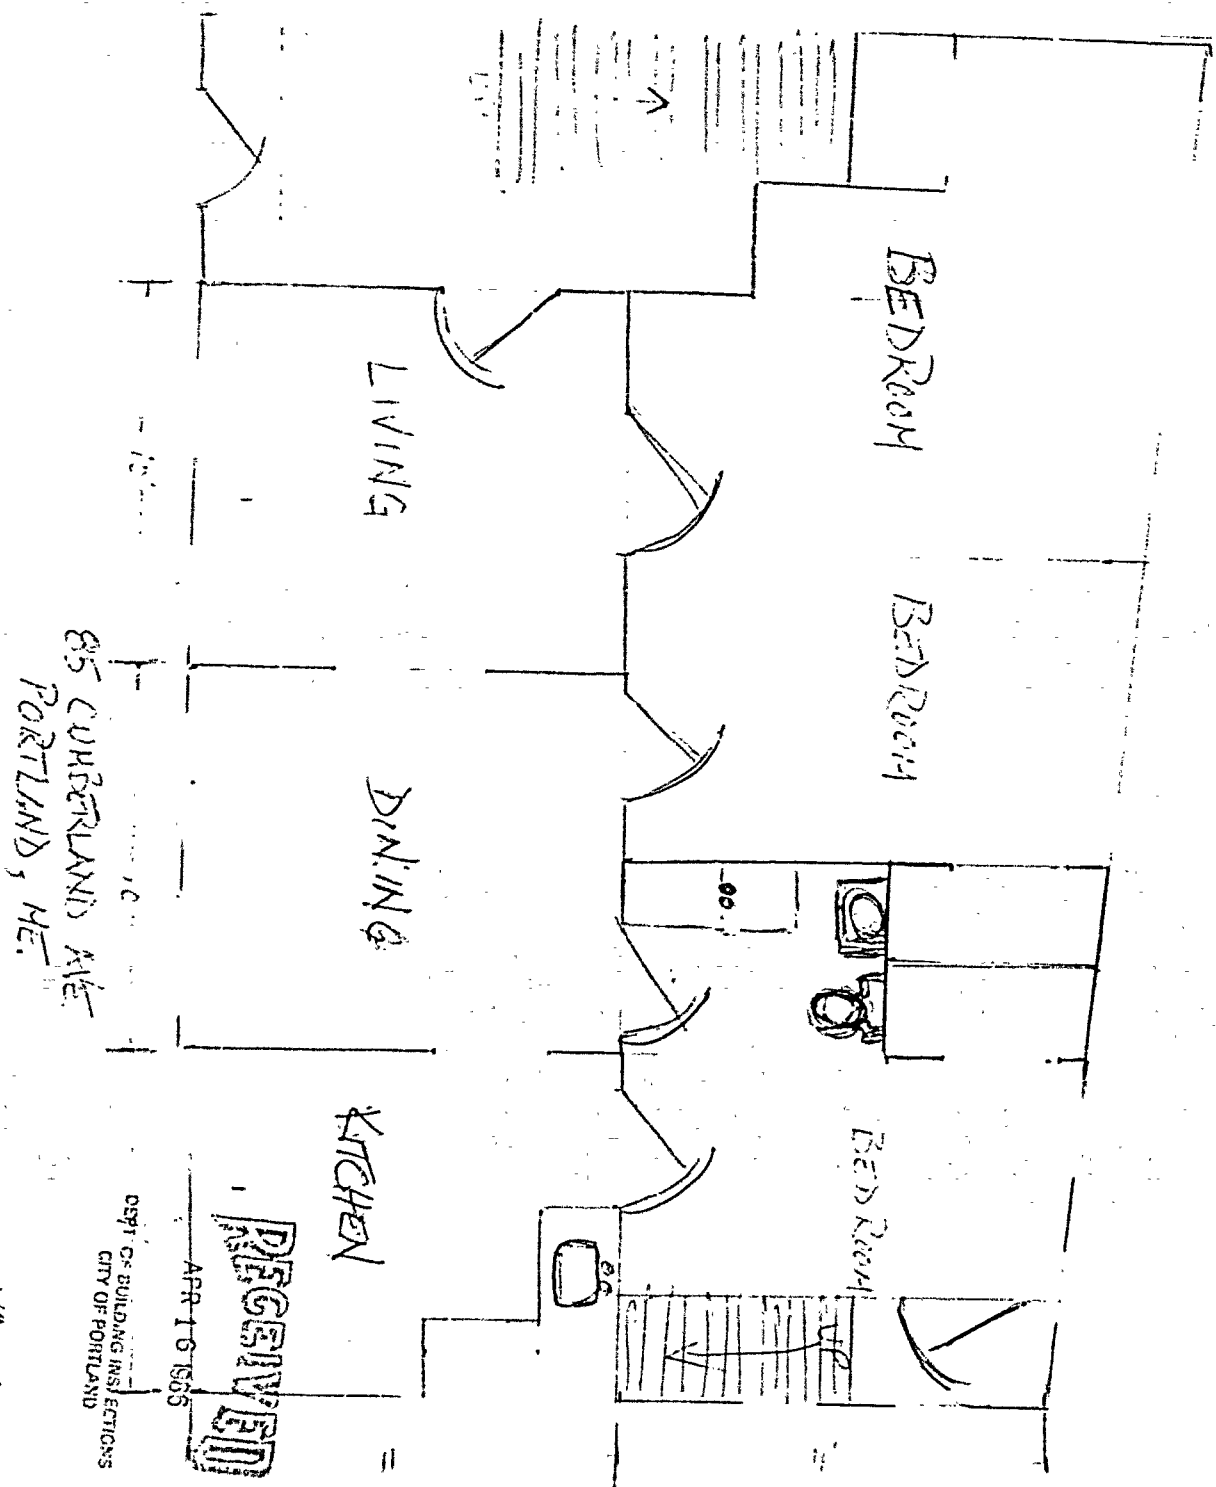 BEDROOM
BEDROOM
BEDROOM
LIVING
DINING
KITCHEN
UP
85 CUMBERLAND AVE
PORTLAND, ME.
RECEIVED
APR 16 1986
DEPT. OF BUILDING INSPECTIONS
CITY OF PORTLAND